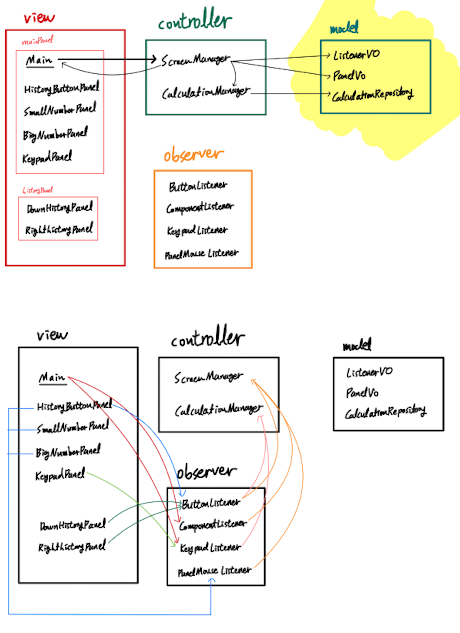 view
mainPanel
Main
HistoryButtonPanel
SmallNumberPanel
BigNumberPanel
KeypadPanel
DownHistoryPanel
RighthistoryPanel
controller
ScreenManager
CalculationManager
model
ListenerVO
PanelVo
CalculationRepository
observer
ButtonListener
ComponentListener
Keypad Listener
PanelMouse Listener
view
Main
HistoryButtonPanel
SmallNumberPanel
BigNumberPanel
KeypadPanel
DownHistoryPanel
RighthistoryPanel
controller
ScreenManager
CalculationManager
model
ListenerVO
PanelVo
CalculationRepository
observer
ButtonListener
ComponentListener
Keypad Listener
PanelMouse Listener